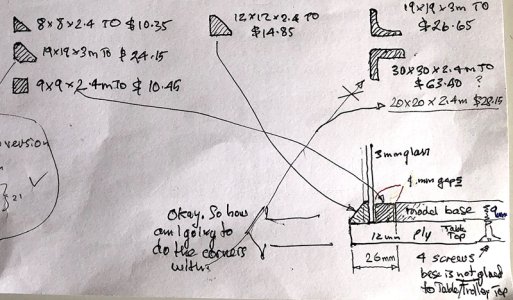 8×8×2.4 TO $10.35
19×19×3m TO $24.15
9×9×2.4m TO $10.45
12×12×2.4 TO
$14.85
19×19×3m TO
$26.65
30×30×2.4m TO
$63.40 ?
20×20×2.4m $28.15
version
21
3mm glass
4 mm gaps
model base
12mm PLY Table Top
26mm
Okay. So how
am I going to
do the corners
with
4 screws
base is not glued
to Table/Trolley Top